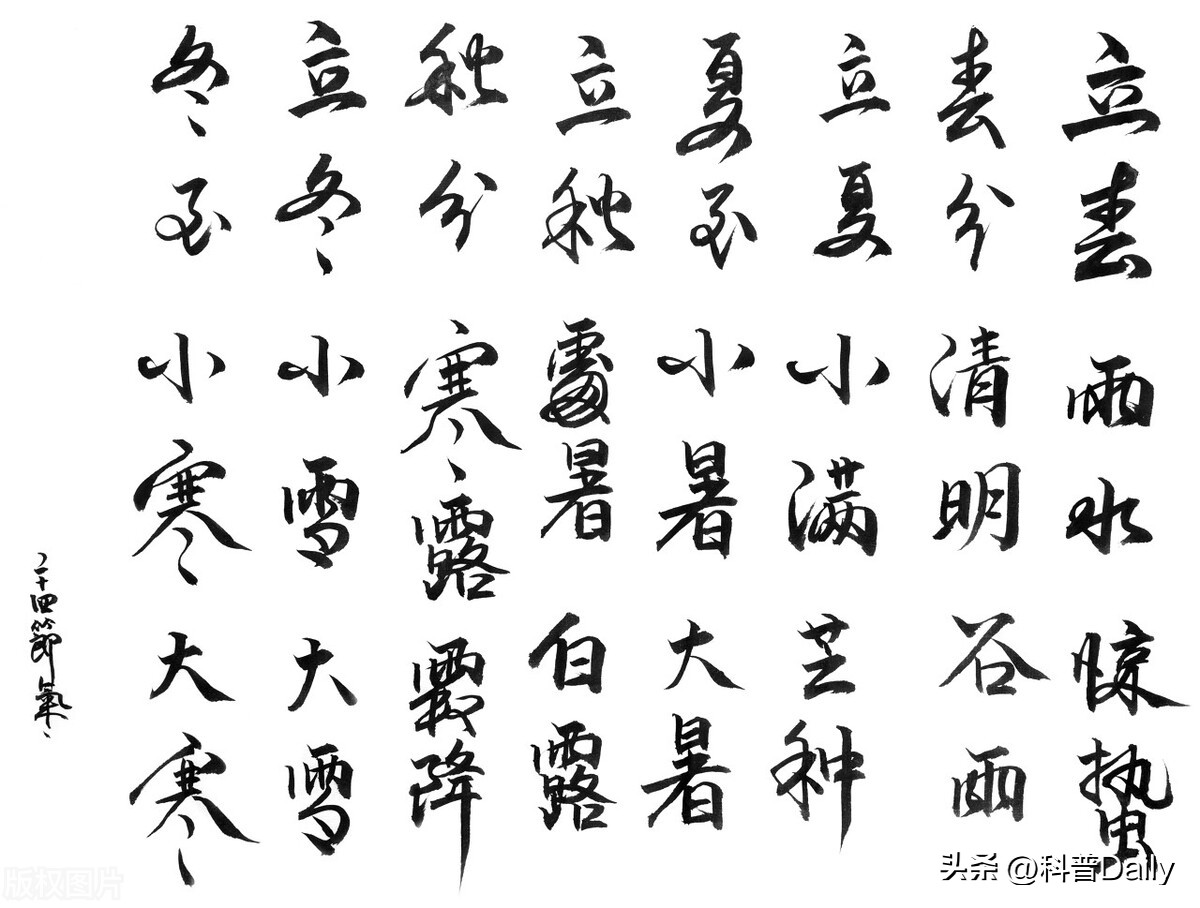 立春 雨水 惊蛰
春分 清明 谷雨
立夏 小满 芒种
夏至 小暑 大暑
立秋 處暑 白露
秋分 寒露 霜降
立冬 小雪 大雪
冬至 小寒 大寒
二十四節氣
头条 @科普Daily
版权图片